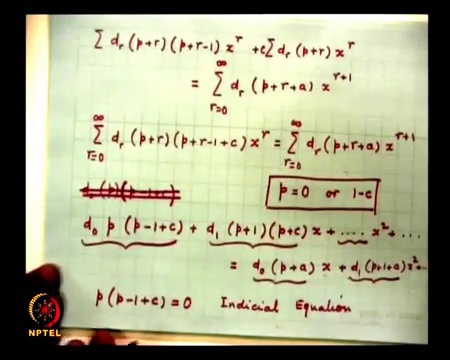 Σ dᵣ (p+r) (p+r-1) xʳ + c Σ dᵣ (p+r) xʳ
= Σ_{r=0}^{∞} dᵣ (p+r+a) x^{r+1}
Σ_{r=0}^{∞} dᵣ (p+r) (p+r-1+c) xʳ = Σ_{r=0}^{∞} dᵣ (p+r+a) x^{r+1}
p=0 or 1-c
d₀ p (p-1+c) + d₁ (p+1) (p+c) x + .... x² + ...
= d₀ (p+a) x + d₁ (p+1+a) x² ...
p (p-1+c) = 0 Indicial Equation
NPTEL